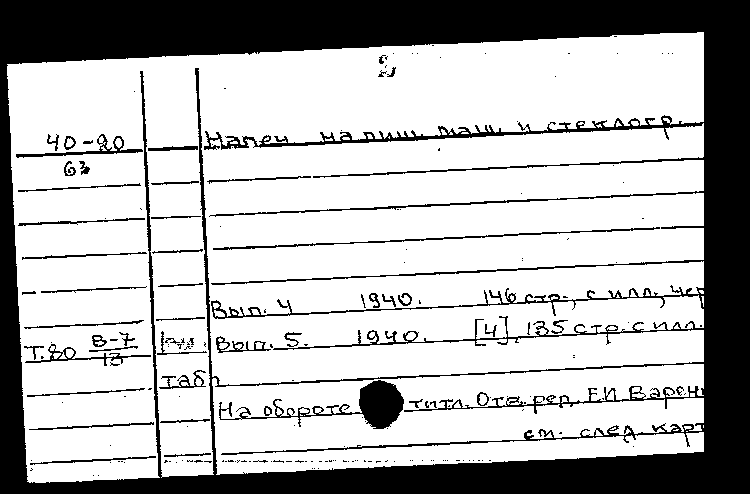 2
40-20 Напеч. на пиш. маш. и стеклогр.
63
Вып. 4 1940. 146 стр., с илл., чер
Т.80 В-7/13 Вып. 5. 1940. [4], 135 стр. с илл.
табл
На обороте титл. Отв. ред. Е.И Варен
см. след. карт